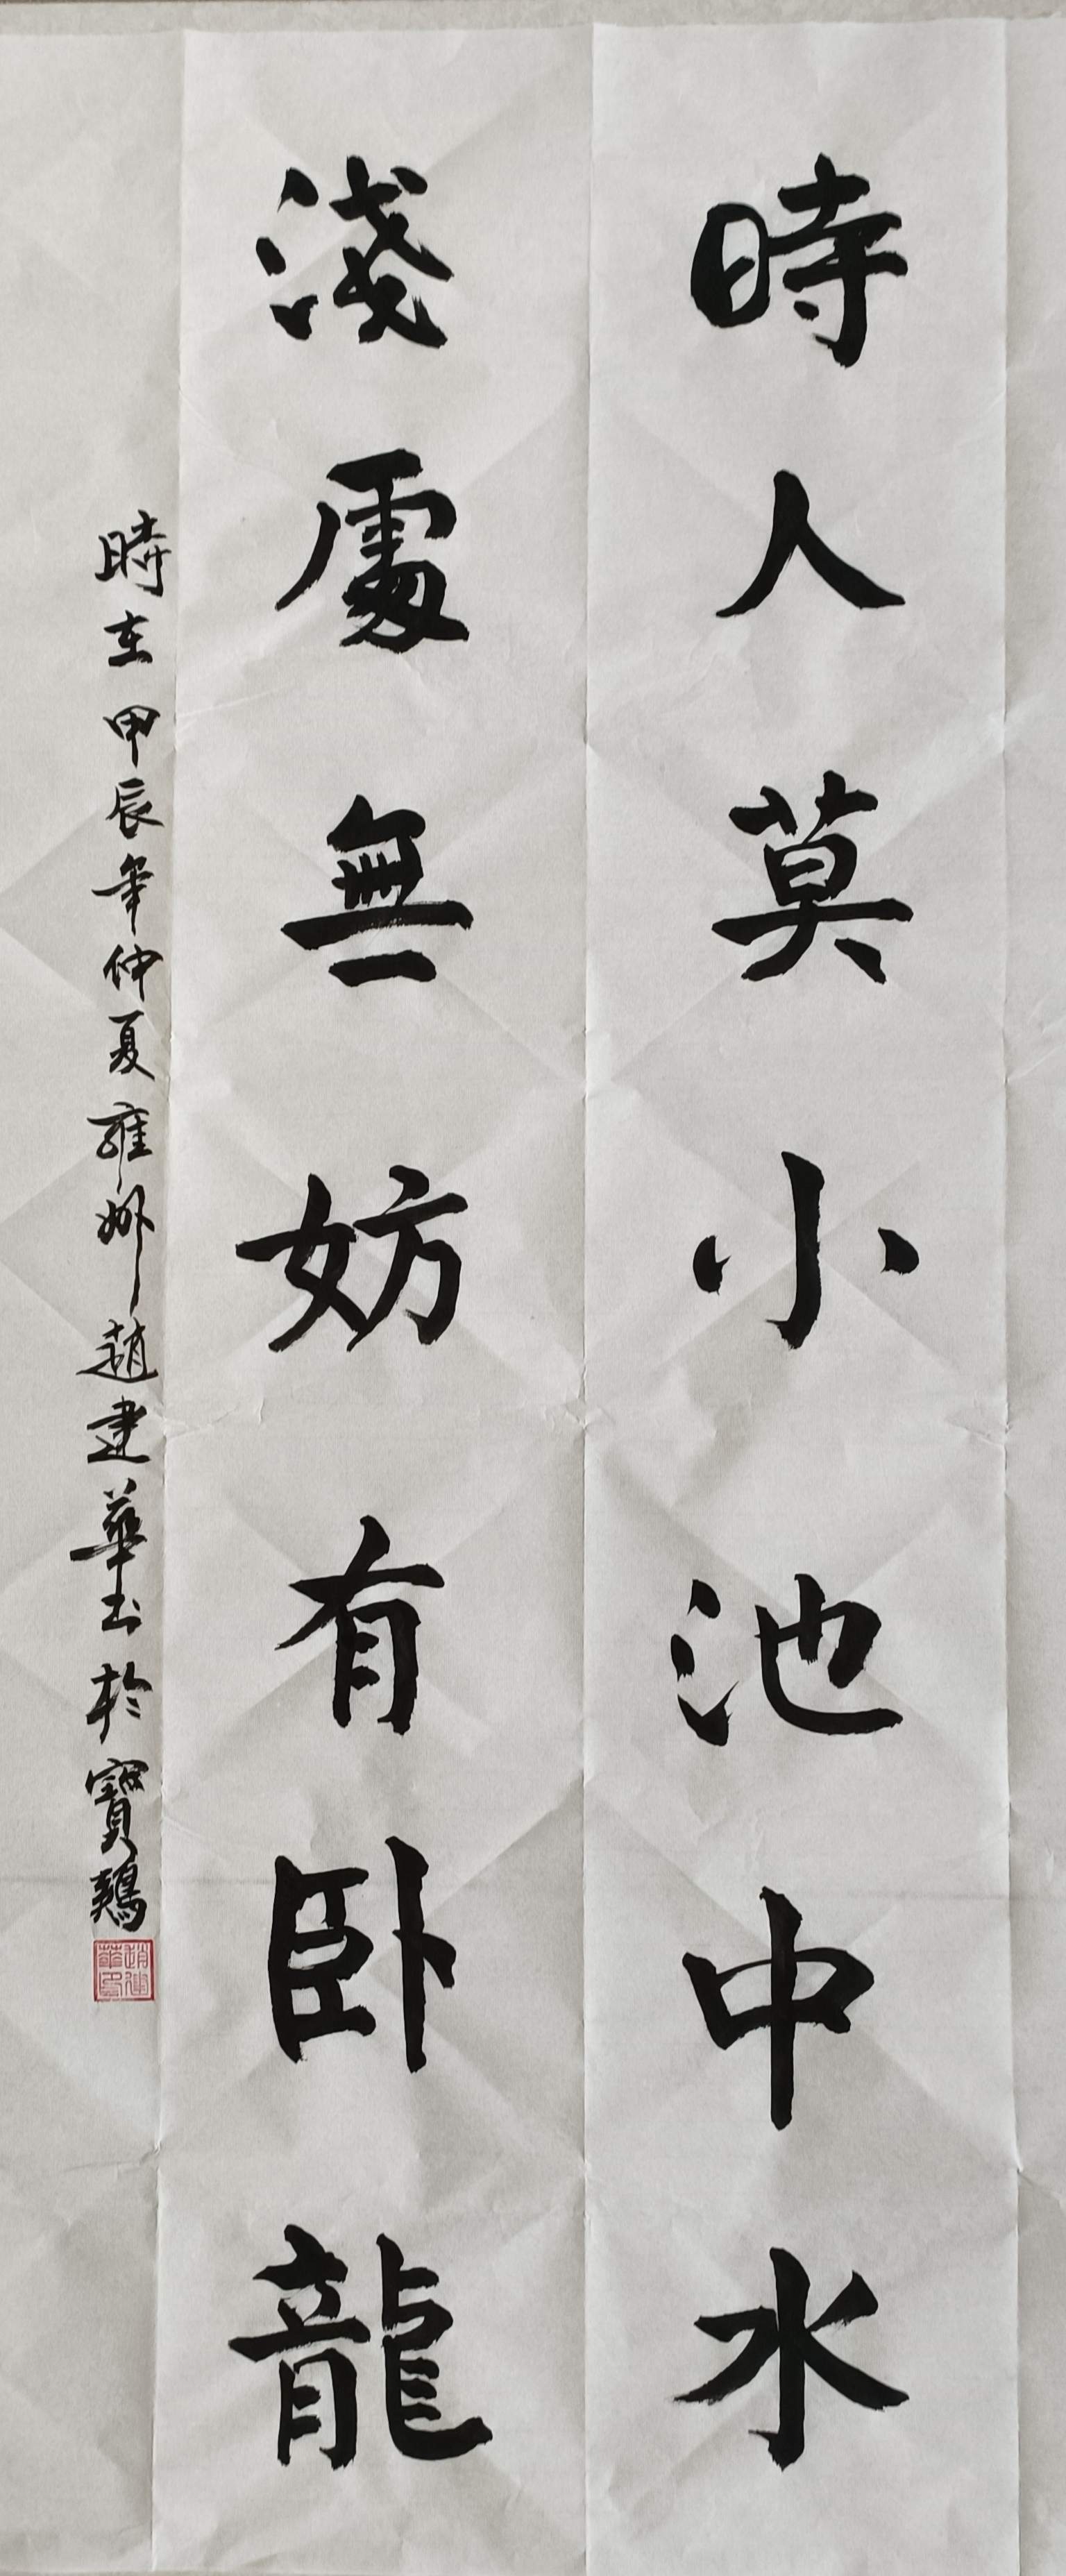 時人莫小池中水
淺處無妨有臥龍
時在甲辰年仲夏雍州趙建華书於寶鷄
趙建華印